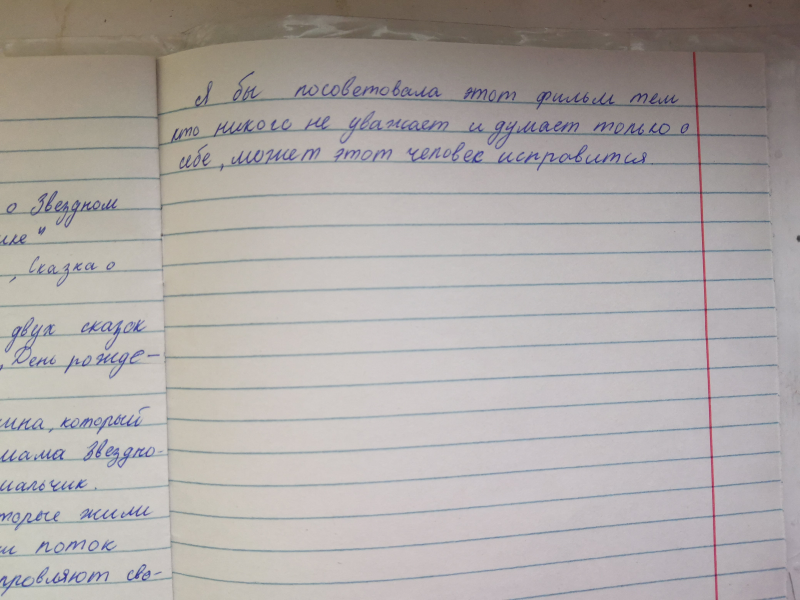 о Звездном
ике"
„Сказка о
двух сказок
„День рожде-
ина, который
мама Звездно-
мальчик.
оторые жили
и поток
провляют сво-
Я бы посоветовала этот фильм тем
кто никого не уважает и думает только о
себе, может этот человек исправится.